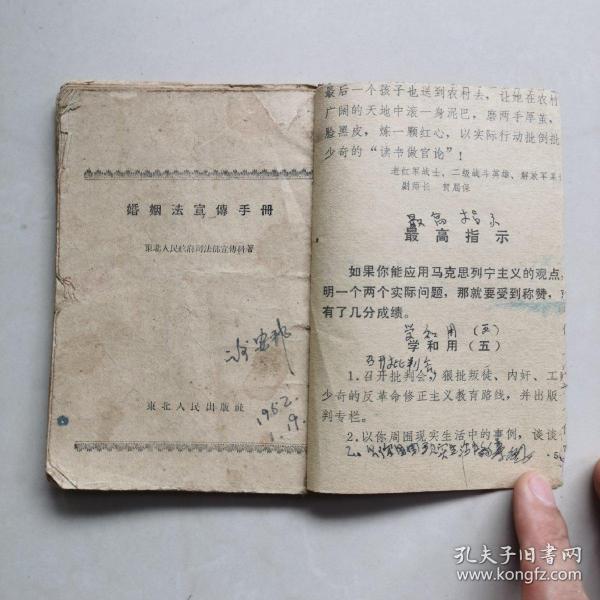 婚姻法宣傳手冊
東北人民政府司法部宣傳科著
1952.
1.19.
東北人民出版社
最后一个孩子也送到农村去，让她在农村
广阔的天地中滚一身泥巴，磨两手厚茧，
脸黑皮，炼一颗红心，以实际行动批倒批
少奇的“读书做官论”！
老红军战士、二级战斗英雄、解放军某
副师长
最高指示
最高指示
如果你能应用马克思列宁主义的观点，
明一个两个实际问题，那就要受到称赞，
有了几分成绩。
学和用（五）
学和用（五）
召开批判会
1.召开批判会，狠批叛徒、内奸、工
少奇的反革命修正主义教育路线，并出版
判专栏。
2.以你周围现实生活中的事例，谈谈
2.以你周围现实生活中的事例
孔夫子旧书网
www.kongfz.com